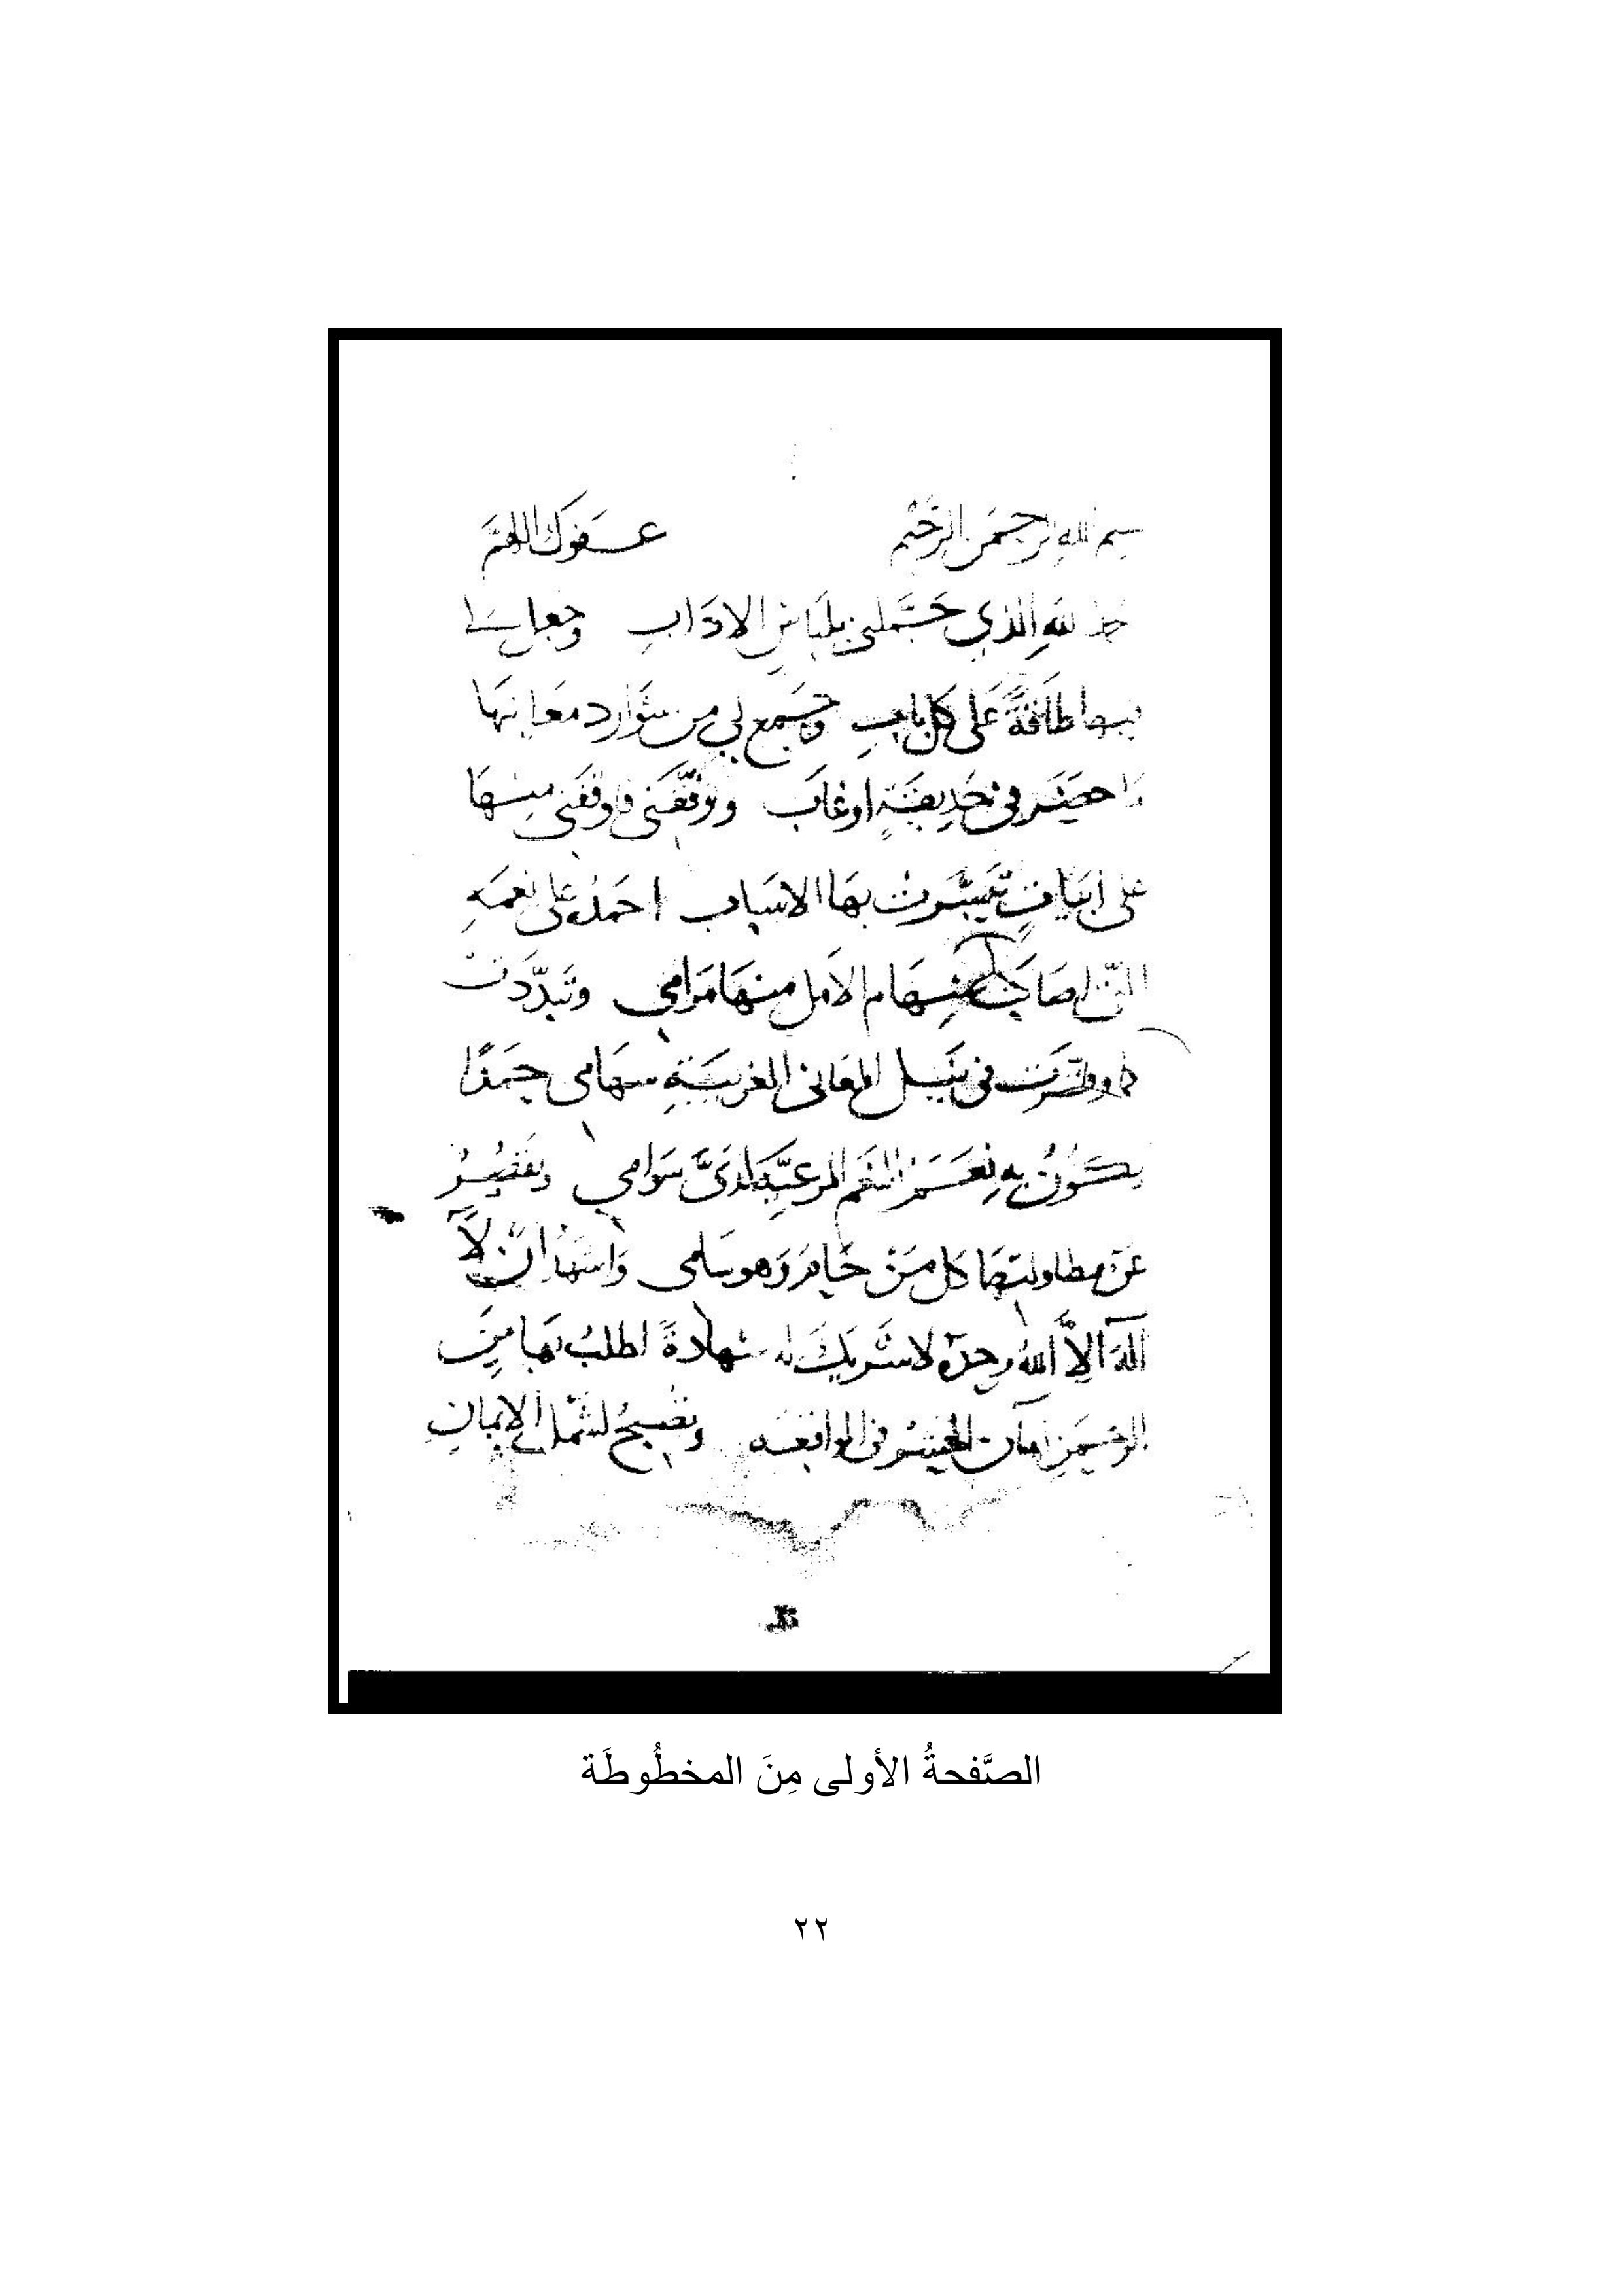 بسم الله الرحمن الرحيم عفوك اللهم
لله الذي جملني بلباس الاداب وجعل
طاقة على كل باب وجمع لي من شوارد معانيها
ما حضر في حديقة او غاب ووفقني منها
على ابيات تيسرت بها الاسباب احمده على نعمه
التي اصابت سهام الامل منها مرامي وتبددت
في نيل المعاني الغريبة سهامي حمدًا
يكون به نعم لدىَّ سوامي
عن مطاولتها كل من وهو سامي واشهد ان لا
اله الا الله وحده لا شريك له شهادةً اطلبُ بها من
الرحمن في الواقعه الايمان
الصَّفحةُ الأولى مِنَ المخطُوطَة
٢٢